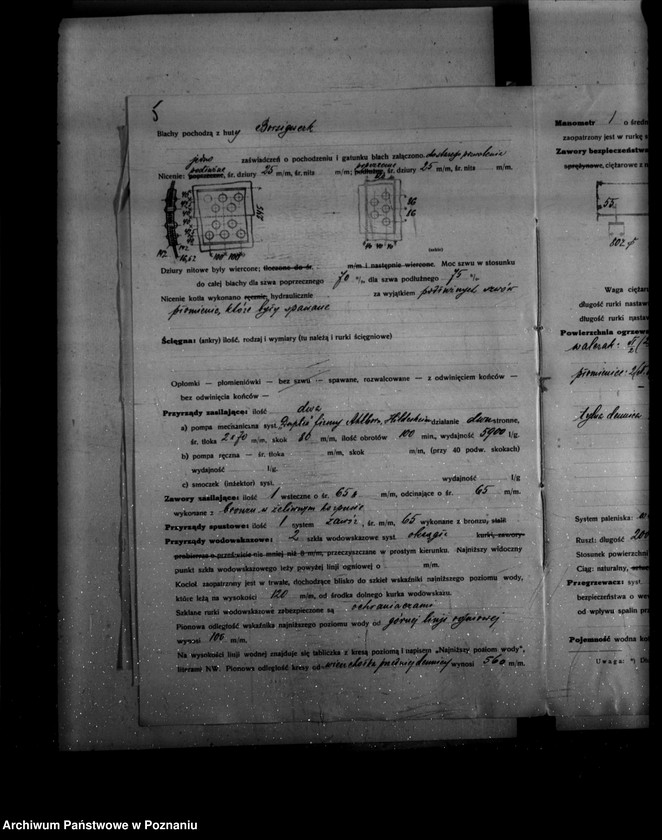 5
Blachy pochodzą z huty Borsigwerk
zaświadczeń o pochodzeniu i gatunku blach załączono.
Nicenie: podłużne, śr. dziury 25 m/m, śr. nita m/m; poprzeczne śr. dziury 25 m/m, śr. nita m/m.
245
86
86
Dziury nitowe były wiercone; tłoczone do śr. m/m i następnie wiercone. Moc szwu w stosunku
do całej blachy dla szwa poprzecznego 70 %, dla szwa podłużnego 75 %.
Nicenie kotła wykonano ręcznie, hydraulicznie za wyjątkiem podłużnych szwów
płomienic, które były spawane
Ścięgna: (ankry) ilość, rodzaj i wymiary (tu należą i rurki ścięgniowe)
Opłomki — płomieniówki — bez szwu — spawane, rozwalcowane — z odwinięciem końców —
bez odwinięcia końców —
Przyrządy zasilające: ilość dwa
a) pompa mechaniczna syst. firmy Ahlborn, Hildesheim działanie dwustronne,
śr. tłoka 2x70 m/m, skok 80 m/m, ilość obrotów 100 min., wydajność 5900 l/g.
b) pompa ręczna — śr. tłoka m/m, skok m/m, (przy 40 podw. skokach)
wydajność l/g.
c) smoczek (inżektor) syst. wydajność l/g
Zawory zasilające: ilość 1 wsteczne o śr. 65 m/m, odcinające o śr. 65 m/m.
wykonane z bronzu w żeliwnym korpusie
Przyrządy spustowe: ilość 1 system zawór, śr. m/m, 65 wykonane z bronzu, stali
Przyrządy wodowskazowe: 2 szkła wodowskazowe syst okrągłe kurki, zawory
probiercze o prześwicie nie mniej niż 8 m/m, przeczyszczane w prostym kierunku. Najniższy widoczny
punkt szkła wodowskazowego leży powyżej linji ogniowej o m/m.
Kocioł zaopatrzony jest w trwałe, dochodzące blisko do szkieł wskaźniki najniższego poziomu wody,
które leżą na wysokości 120 m/m, od środka dolnego kurka wodowskazu.
Szklane rurki wodowskazowe zabezpieczone są ochraniaczami
Pionowa odległość wskaźnika najniższego poziomu wody od górnej linji ogniowej
wynosi 100 m/m.
Na wysokości linji wodnej znajduje się tabliczka z kresą poziomą i napisem „Najniższy poziom wody",
literami NW. Pionowa odległość kresy od wierzchołka przedniej dennicy wynosi 560 m/m.
Manometr 1 o średn
zaopatrzony jest w rurkę s
Zawory bezpieczeństwa
sprężynowe, ciężarowe z n
55
Waga ciężar
długość rurki nastaw
długość rurki nastaw
Powierzchnia ogrzew
walczak:
płomienice:
tylna dennica
System paleniska:
Ruszt: długość 200
Stosunek powierzchni
Ciąg: naturalny,
Przegrzewacz: syst.
bezpieczeństwa o we
od wpływu spalin pr
Pojemność wodna kot
Uwaga: *)
Archiwum Państwowe w Poznaniu